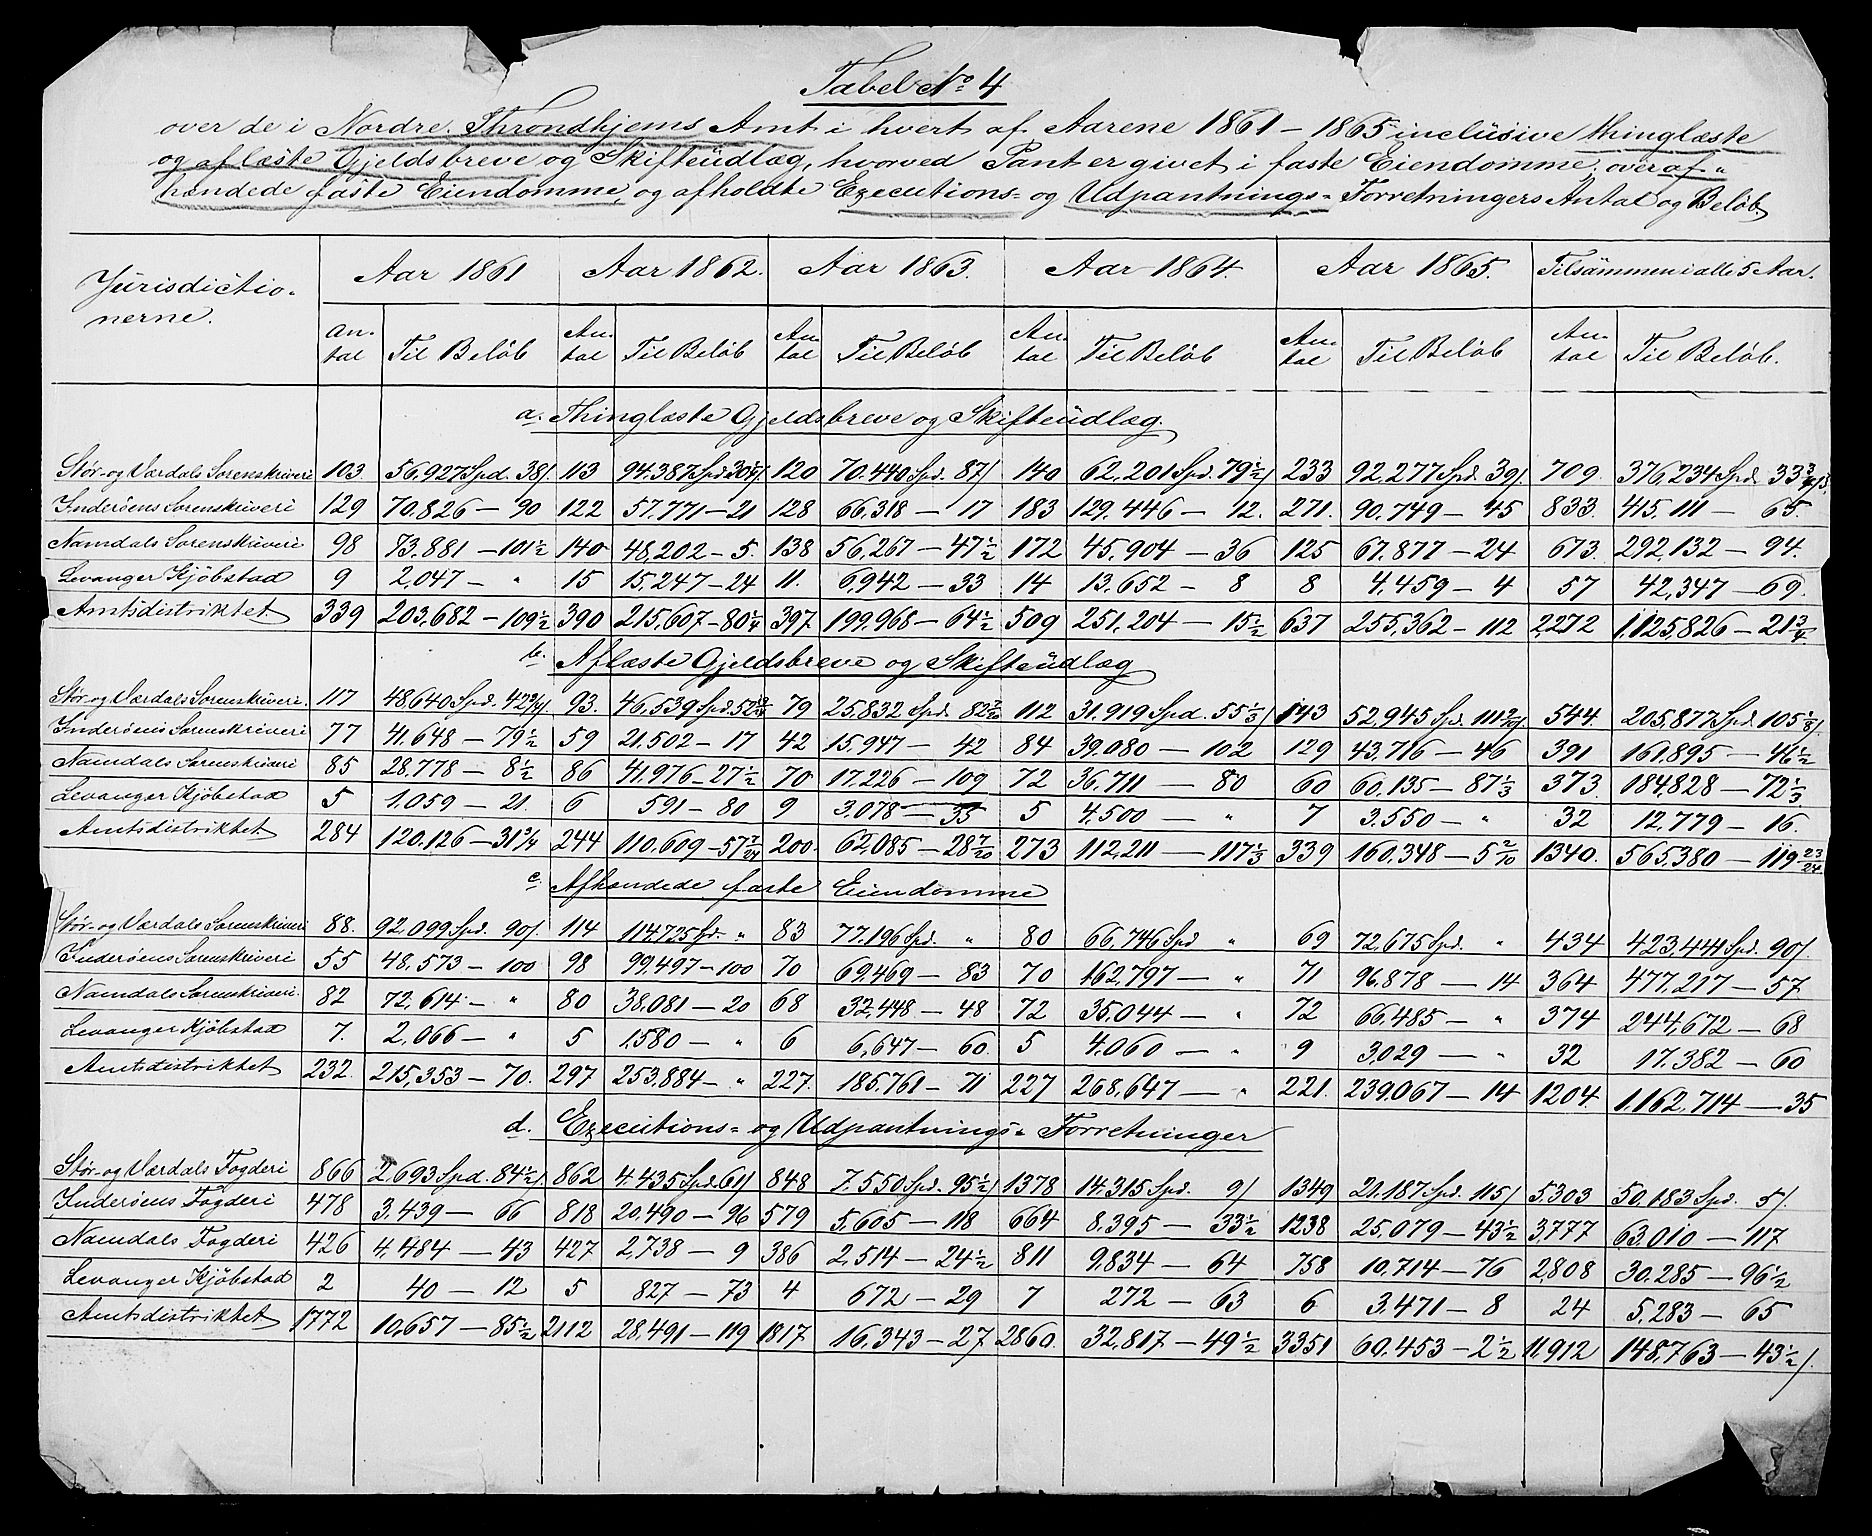 Tabel No. 4
over de i Nordre Throndhjems Amt i hvert af Aarene 1861 – 1865 inclusive thinglæste
og aflæste Gjeldsbreve og Skifteudlæg, hvorved Pant er givet i faste Eiendomme, over af-
hændede faste Eiendomme, og afholdte Executions- og Udpantnings-Forretningers Antal og Beløb.
Jurisdictio- Aar 1861 Aar 1862. Aar 1863. Aar 1864. Aar 1865. Tilsammen i alle 5 Aar.
nerne. An- An- An- An- An- An-
tal Til Beløb tal Til Beløb tal Til Beløb tal Til Beløb tal Til Beløb tal Til Beløb.
a. Thinglæste Gjeldsbreve og Skifteudlæg.
Stør- og Værdals Sorenskriveri 103. 56.927 Spd. 38 113 94.387 Spd. 30¼ 120 70.440 Spd. 87 140 62,201 Spd. 79½ 233 92,277 Spd. 39 709. 376,234 Spd. 33¾
Inderøens Sorenskriveri 129 70.826 – 90 122 57.771 – 21 128 66,318 – 17 183 129.446 – 12. 271. 90.749 – 45 833. 415.111 – 65.
Namdals Sorenskriveri 98 73.881 – 101½ 140 48,202 – 5. 138 56,267 – 47½ 172 45.904 – 36 125 67.877 – 24 673. 292,132 – 94.
Levanger Kjøbstad 9 2,047 – " 15 15,247 – 24 11. 6,942 – 33 14 13.652 – 8 8 4,459 – 4 57 42,347 – 69.
Amtsdistriktet 339 203,682 – 109½ 390 215,607 – 80¼ 397 199.968 – 64½ 509 251,204 – 15½ 637 255,362 – 112 2,272 1.125,826 – 21¾
b. Aflæste Gjeldsbreve og Skifteudlæg
Stør- og Værdals Sorenskriveri. 117 48.640 Spd. 93. 46,539 Spd. 79 25.832 Spd. 112 31.919 Spd. 55⅓ 143 52,945 Spd. 111 2/10 544. 205,877 Spd. 105⅛
Inderøens Sorenskriveri 77 41.648 – 79½ 59 21.502 – 17 42 15.947 – 42 84 39.080 – 102 129 43,716 – 46 391 161.895 – 46½
Namdals Sorenskriveri 85 28,778 – 8½ 86 41,976 – 27½ 70 17.226 – 109 72 36,711 – 80 60 60.135 – 87⅓ 373. 184,828 – 72⅓
Levanger Kjøbstad 5 1.059 – 21. 6 591 – 80 9 3.078 – 33 5 4.500 – " 7 3.550 – " 32 12.779 – 16.
Amtsdistriktet 284 120,126 – 31¾ 244 110.609 – 57 7/24 200. 62,085 – 28 7/20 273 112,211 – 117⅓ 339 160,348 – 5 2/10 1340. 565.380 – 119 23/24
c. Afhændede faste Eiendomme
Stør- og Værdals Sorenskriveri 88. 92,099 Spd. 90 114 114,725 Spd. " 83 77.196 Spd. " 80 66,746 Spd " 69 72,675 Spd. " 434 423,441 Spd. 90
Inderøens Sorenskriveri 55 48,573 – 100 98 99,497 – 100 70 69,469 – 83 70 162,797 – " 71 96.878 – 14 364 477,217 – 57
Namdals Sorenskriveri. 82 72,614 – " 80 38.081 – 20 68 32,448 – 48 72 35.044 – " 72 66,485 – " 374 244,672 – 68
Levanger Kjøbstad 7. 2,066 – " 5 1.580 – " 6 6,647 – 60. 5 4,060 – " 9 3.029 – " 32 17.382 – 60
Amtsdistriktet 232. 215,353 – 70. 297 253.884 – " 227. 185.761 – 71 227 268,647 – " 221. 239.067 – 14 1204. 1.162,714 – 35
d. Executions- og Udpantnings- Forretninger
Stør- og Værdals Fogderi 866 2,693 Spd. 84½ 862 4.435 Spd. 61 848 7.550 Spd. 95½ 1378 14.315 Spd. 9 1349 21.187 Spd. 115 5.303 50.183 Spd. 5
Inderøens Fogderi 478 3.439 – 66 818 20,490 – 96 579 5.605 – 118 664 8.395 – 33½ 1238 25,079 – 43½ 3,777 63.010 – 117
Namdals Fogderi 426 4.484 – 43 427 2,738 – 9 386 2,514 – 24½ 811 9.834 – 64 758 10.714 – 76 2,808 30.285 – 96½
Levanger Kjøbstad 2 40 – 12 5 827 – 73 4 672 – 29 7 272 – 63 6 3.471 – 8 24 5.283 – 65
Amtsdistriktet 1772 10,657 – 85½ 2112 28,491 – 119 1817 16,343 – 27 2860. 32,817 – 49½ 3351 60.453 – 2½ 11,912 148,763 – 43½